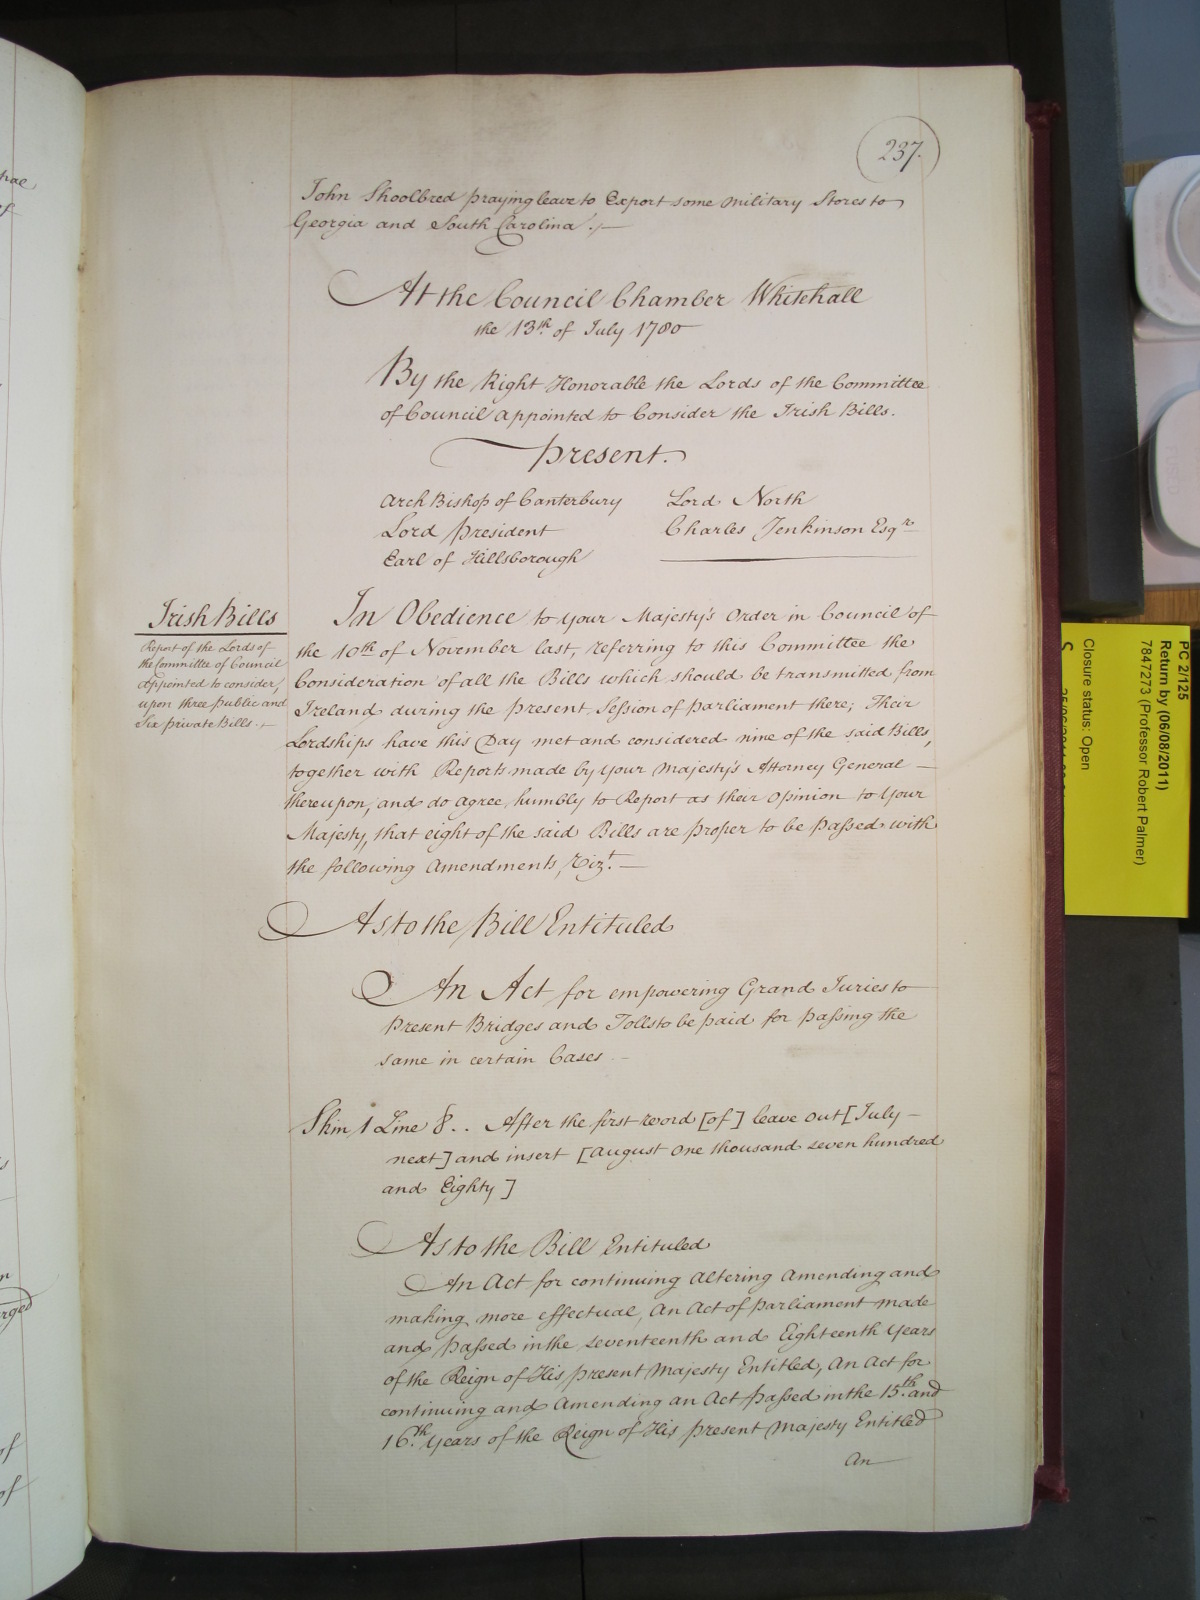 237.
John Shoolbred praying leave to Export some Military Stores to
Georgia and South Carolina.
At the Council Chamber Whitehall
the 13th of July 1780
By the Right Honorable the Lords of the Committee
of Council appointed to Consider the Irish Bills.
Present.
Arch Bishop of Canterbury Lord North
Lord President Charles Jenkinson Esqr
Earl of Hillsborough
Irish Bills
Report of the Lords of
the Committee of Council
Appointed to consider,
upon three public and
Six private Bills.
In Obedience to Your Majesty's Order in Council of
the 10th of November last, referring to this Committee the
Consideration of all the Bills which should be transmitted from
Ireland during the present Session of Parliament there; Their
Lordships have this Day met and considered nine of the said Bills,
together with Reports made by Your Majesty's Attorney General
thereupon, and do agree humbly to Report as their Opinion to Your
Majesty, that eight of the said Bills are proper to be passed with
the following Amendments, Vizt.
As to the Bill Entituled
An Act for empowering Grand Juries to
Present Bridges and Tolls to be paid for passing the
same in certain Cases
Skin 1 Line 8.. After the first word [of] leave out [July
next] and insert [August One thousand seven hundred
and Eighty]
As to the Bill Entituled
An Act for continuing Altering Amending and
making more effectual, An Act of Parliament made
and passed in the seventeenth and Eighteenth Years
of the Reign of His present Majesty Entitled, An Act for
continuing and Amending an Act passed in the 15th and
16th Years of the Reign of His present Majesty Entitled
An
PC 2/125
Return by (06/08/2011)
7847273 (Professor Robert Palmer)
Closure status: Open